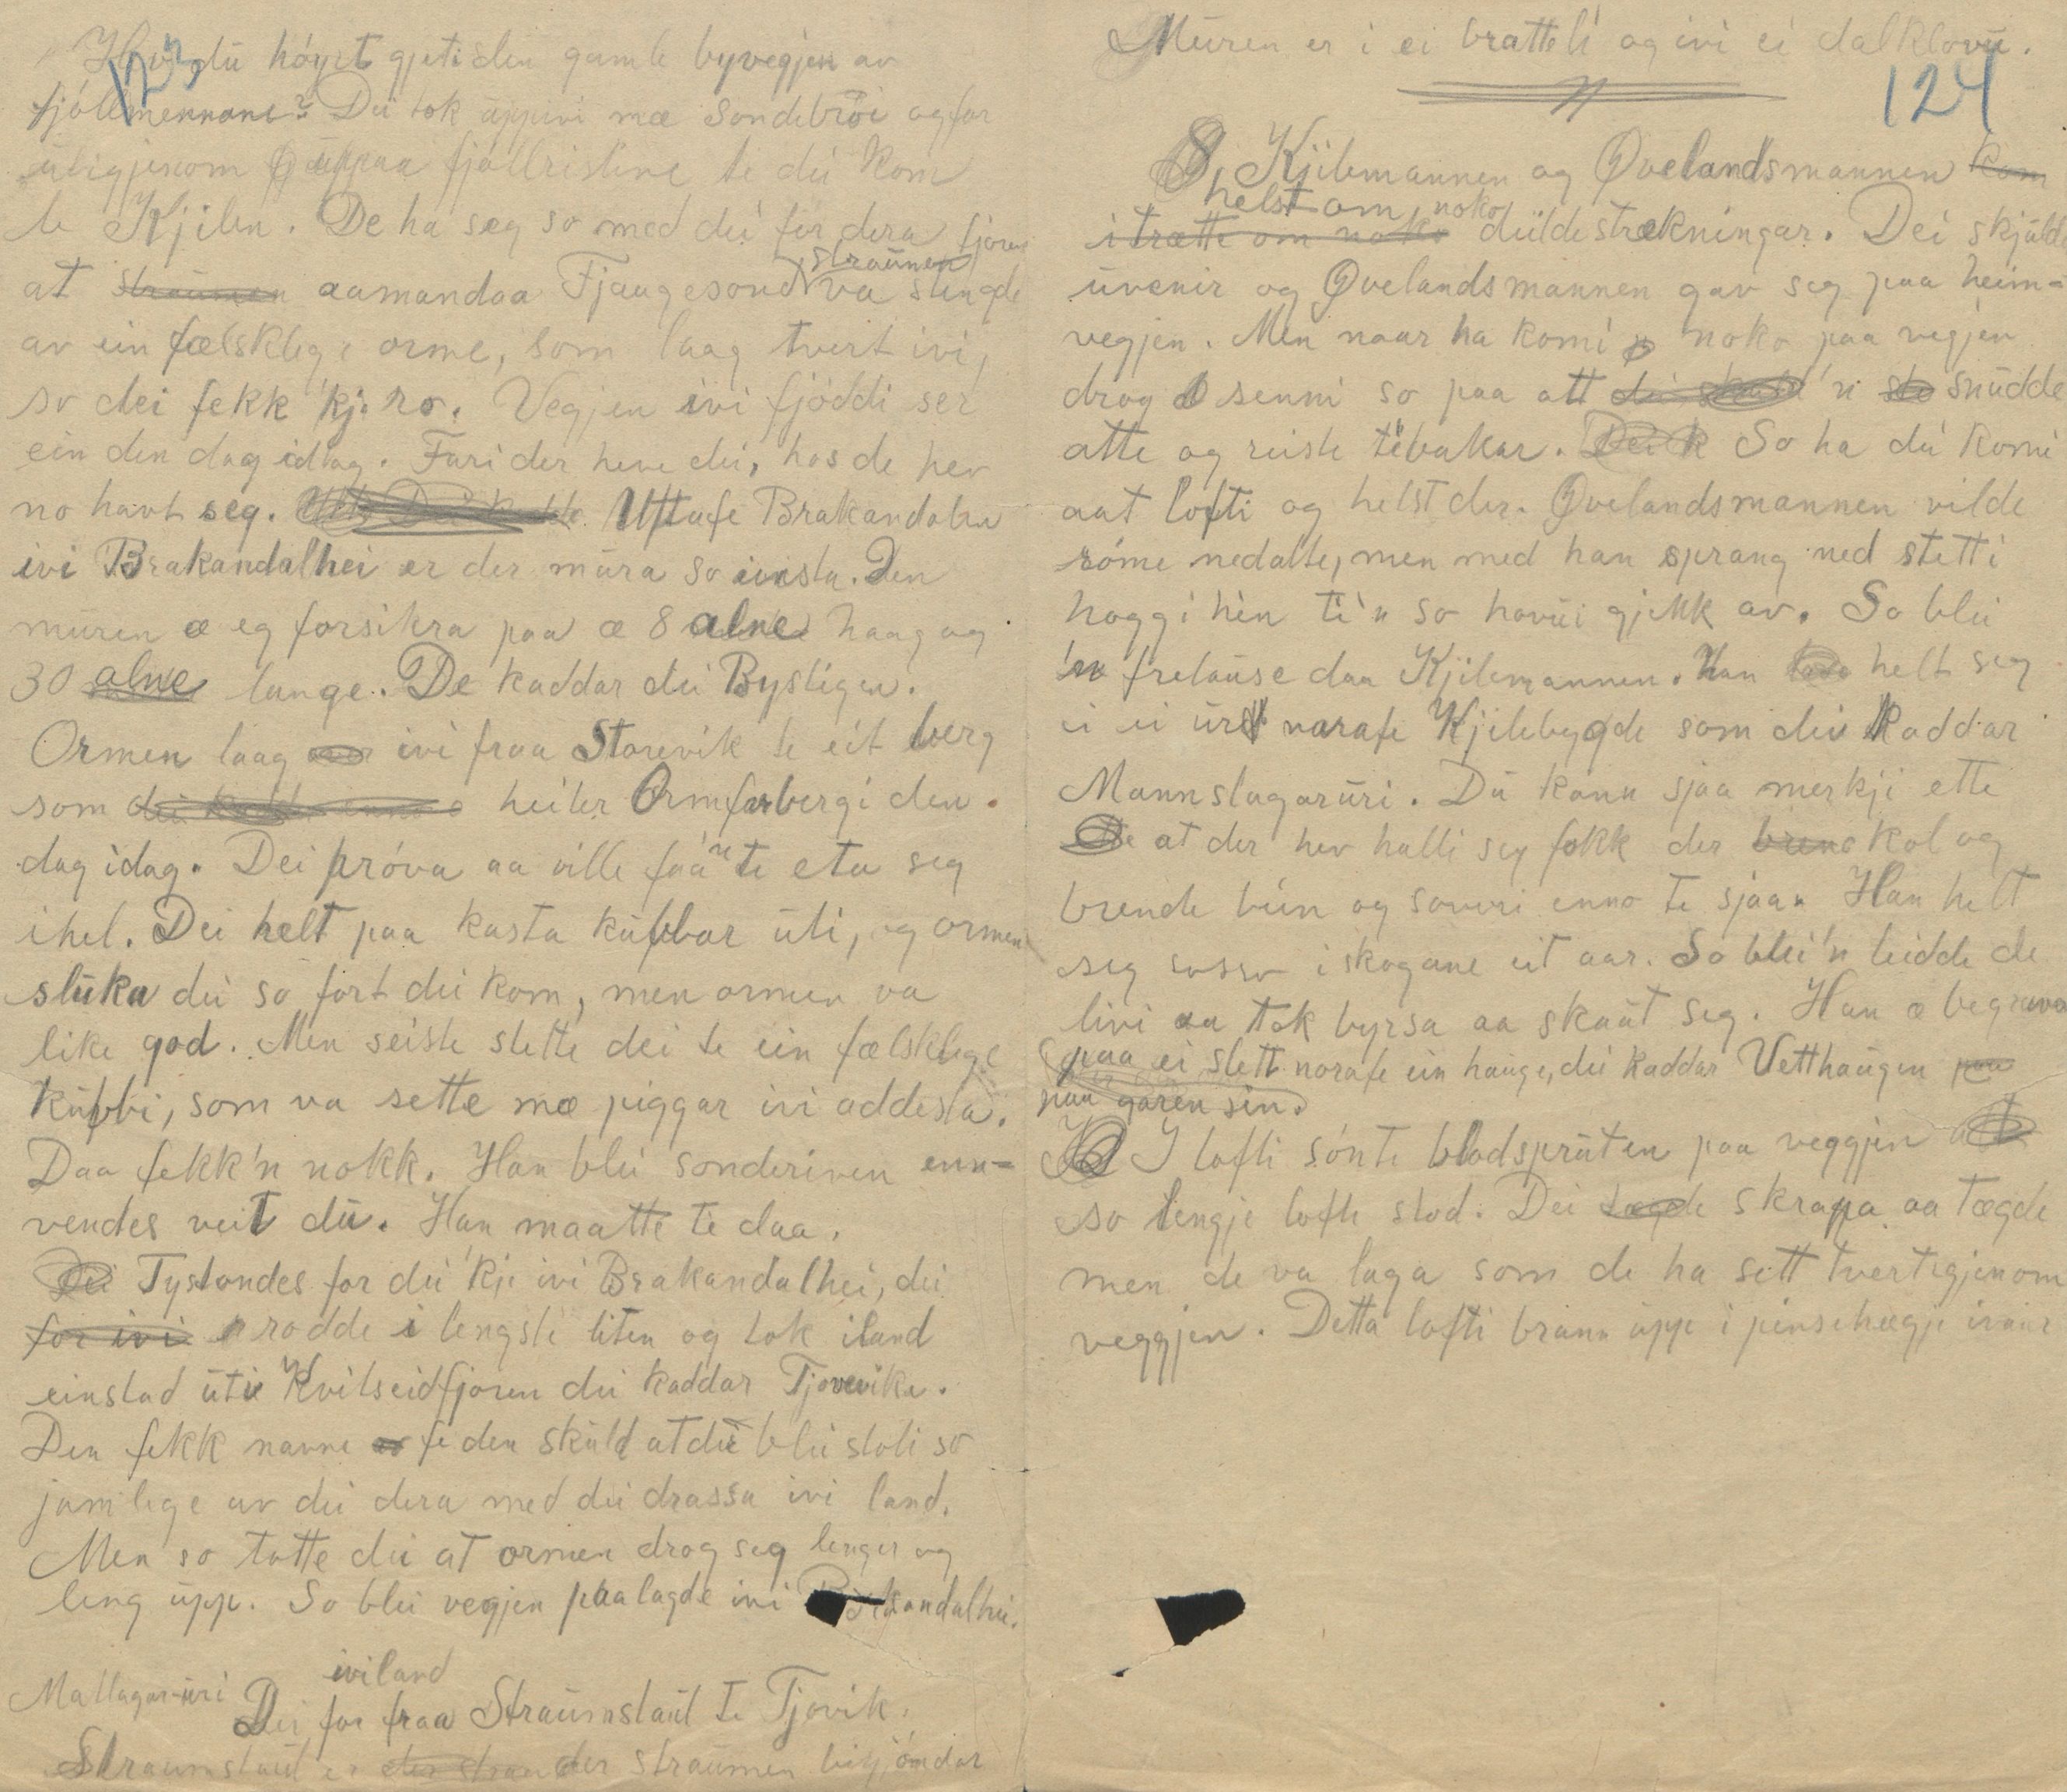 123
Hev dü höyrt gjeti den gamle byvegjen av
fjöllmennane? Dei tok üppivi mæ Sondebröi og for
ütigjenom üppaa fjöllristene te dei kom
te Kjilen. De ha seg so med dei for dera fjoren
at straumen aamandaa Fjaagesond straümen va stengde
av ein fælsklege orme, som laag tvert ivi,
so dei fekk 'kje ro. Vegjen ivi fjöddi ser
ein den dag idag. Fari der heve dei, hos de hev
no havt seg. Uttafe Brakandalen
ivi Brakandalhei er der müra so einsta. Den
müren æ eg forsikra paa æ 8 alne haag og
30 alne lange. De kaddar dei Bystigen.
Ormen laag ivi fraa Storevik te eit berg
som heiter Ormfarbergi den
dag idag. Dei pröva aa ville faa 'n te eta seg
ihel. Dei helt paa kasta kübbar üti, og ormen
slüka dei so fort dei kom, men ormen va
like god. Men seiste slette dei te ein fælsklege
kübbi, som va sette mæ piggar ivi addesta.
Daa fekk'n nokk. Han blei sonderiven enn-
vendes veit dü. Han maatte te daa.
Dei Tystondes for dei 'kje ivi Brakandalhei, dei
for ivi rodde i lengste liten og tok iland
einstad üti Kvitseidfjoren dei kaddar Tjovevike.
Den fekk navne fe den sküld at dei blei stoli so
jamlege av dei dera med dei drassa ivi land.
Men so totte dei at ormen drog seg lenger og
leng üpp. So blei vegjen paalagde ivi Brakandalhei.
Mallagar-üri iviland
Dei for fraa Straümstaül te Tjovik.
Straumstaül er der straümen bigjöndar
Müren er i ei bratteli og ivi ei dalklovü.
124
Kjilemannen og Øvelandsmannen kom
helst om noko
i trætte om noko deildestrekningar. Dei skjüldest
üvenir og Øvelandsmannen gav seg paa heim-
vegjen. Men naar ha komi noko paa vegjen
drog senni so paa att 'n snüdde
atte og reiste tebakar. So ha dei komi
aat lofti og helst der. Øvelandsmannen vilde
röme nedatte, men med han sprang ned stetti
hoggi hin te'n so hovüi gjekk av. So blei
'n frelause daa Kjilemannen. Han helt seg
i ei ürd norafe Kjilebygde som dei kaddar
Mannslagarüri. Dü kann sjaa merkji ette
at der hev halli seg fokk der kol og
brende bein og soveri enno te sjaa. Han helt
seg sosso i skogane eit aar. So blei'n leidde de
livi aa tok byrsa aa skaüt seg. Han æ begraven
paa ei slett norafe ein haüge, dei kaddar Vetthaügen
paa garen sin.
I lofti sönte blodsprüten paa veggjen
so lengje lofte stod. Dei tægde skrapa aa tægde
men de va laga som de ha sett tvertigjenom
veggjen. Detta lofti brann üpp i pinsehægje